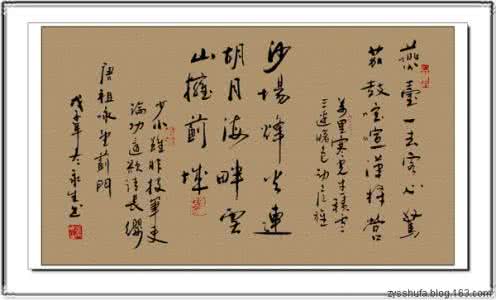 燕臺一去客心驚
笳鼓喧喧漢將營
萬里寒光生積雪
三邊曙色动危旌
沙場烽火連
胡月海畔雲
山擁薊城
少小雖非投筆吏
論功還欲請長纓
唐祖咏望薊門
戊子年永生书
zysshufa.blog.163.com